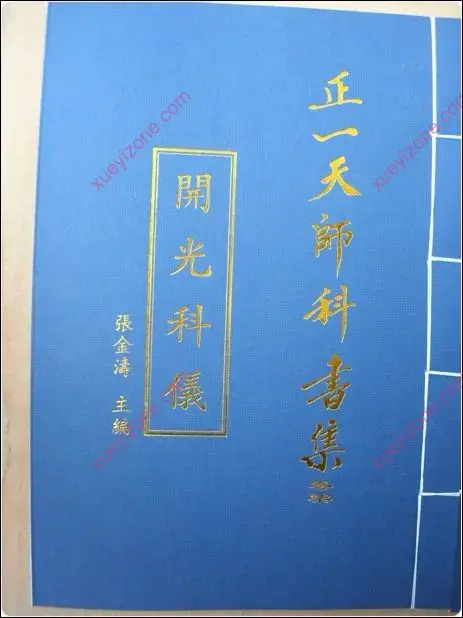 正一天師科書集
開光科儀
張金濤 主編
xueyizone.com
xueyizone.com
xueyizone.com
xueyizone.com